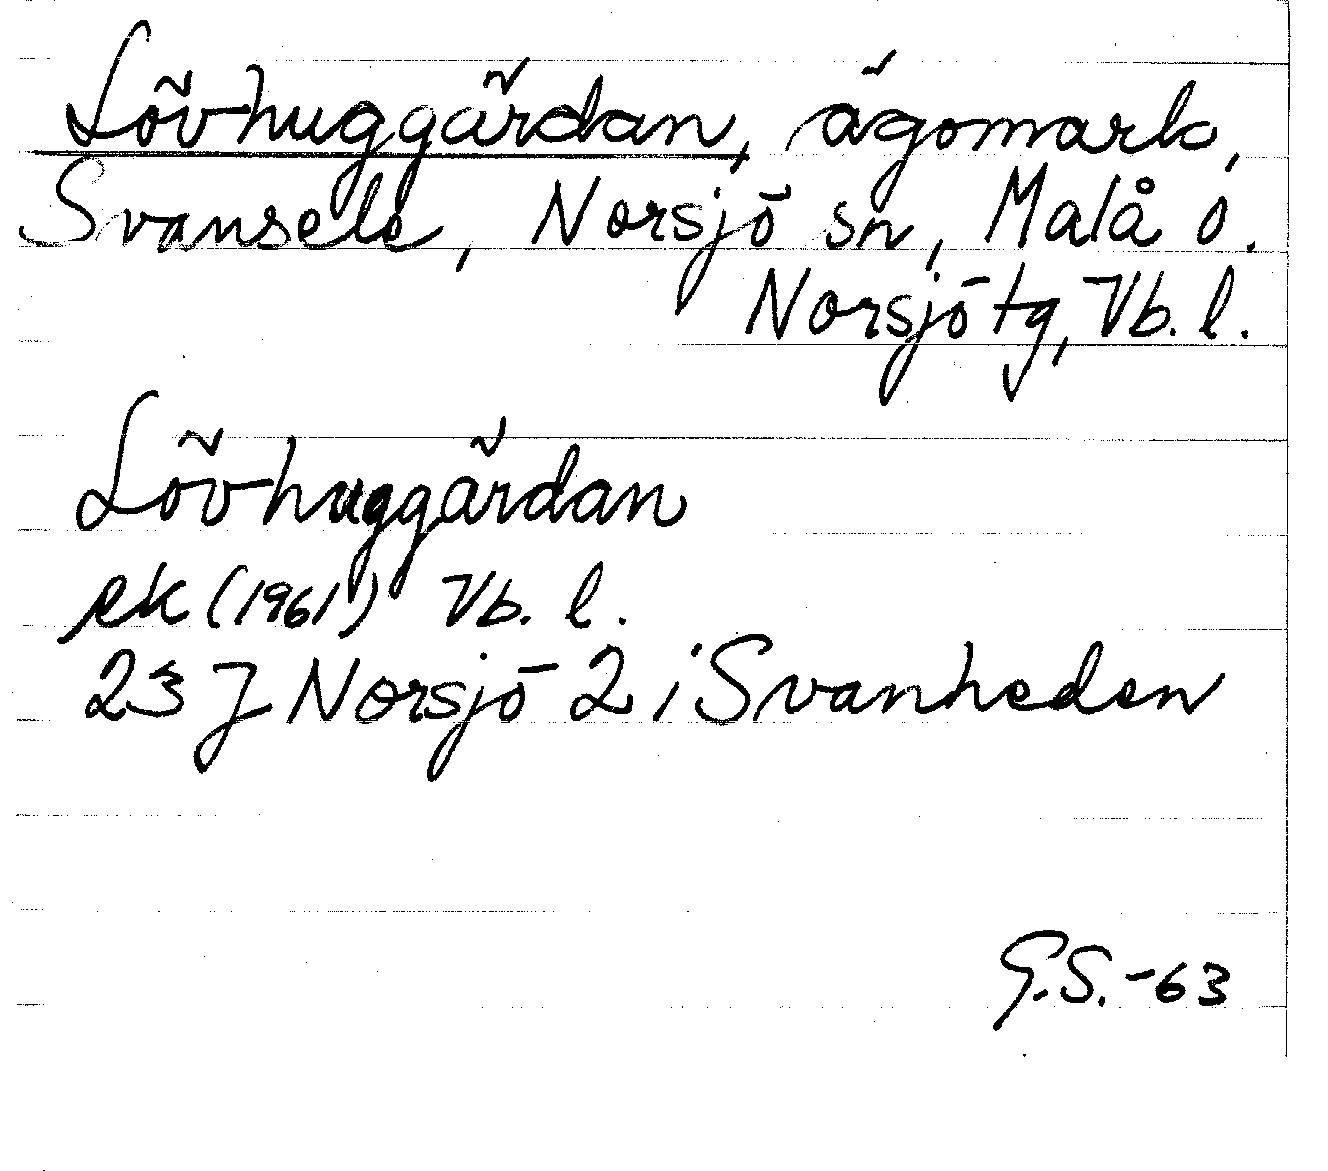 Lövhuggärdan, ägomark,
Svansele, Norsjö sn, Malå o.
Norsjö tg, Vb. l.
Lövhuggärdan
ek (1961) Vb. l.
23 J Norsjö 2 i Svanheden
G.S. -63